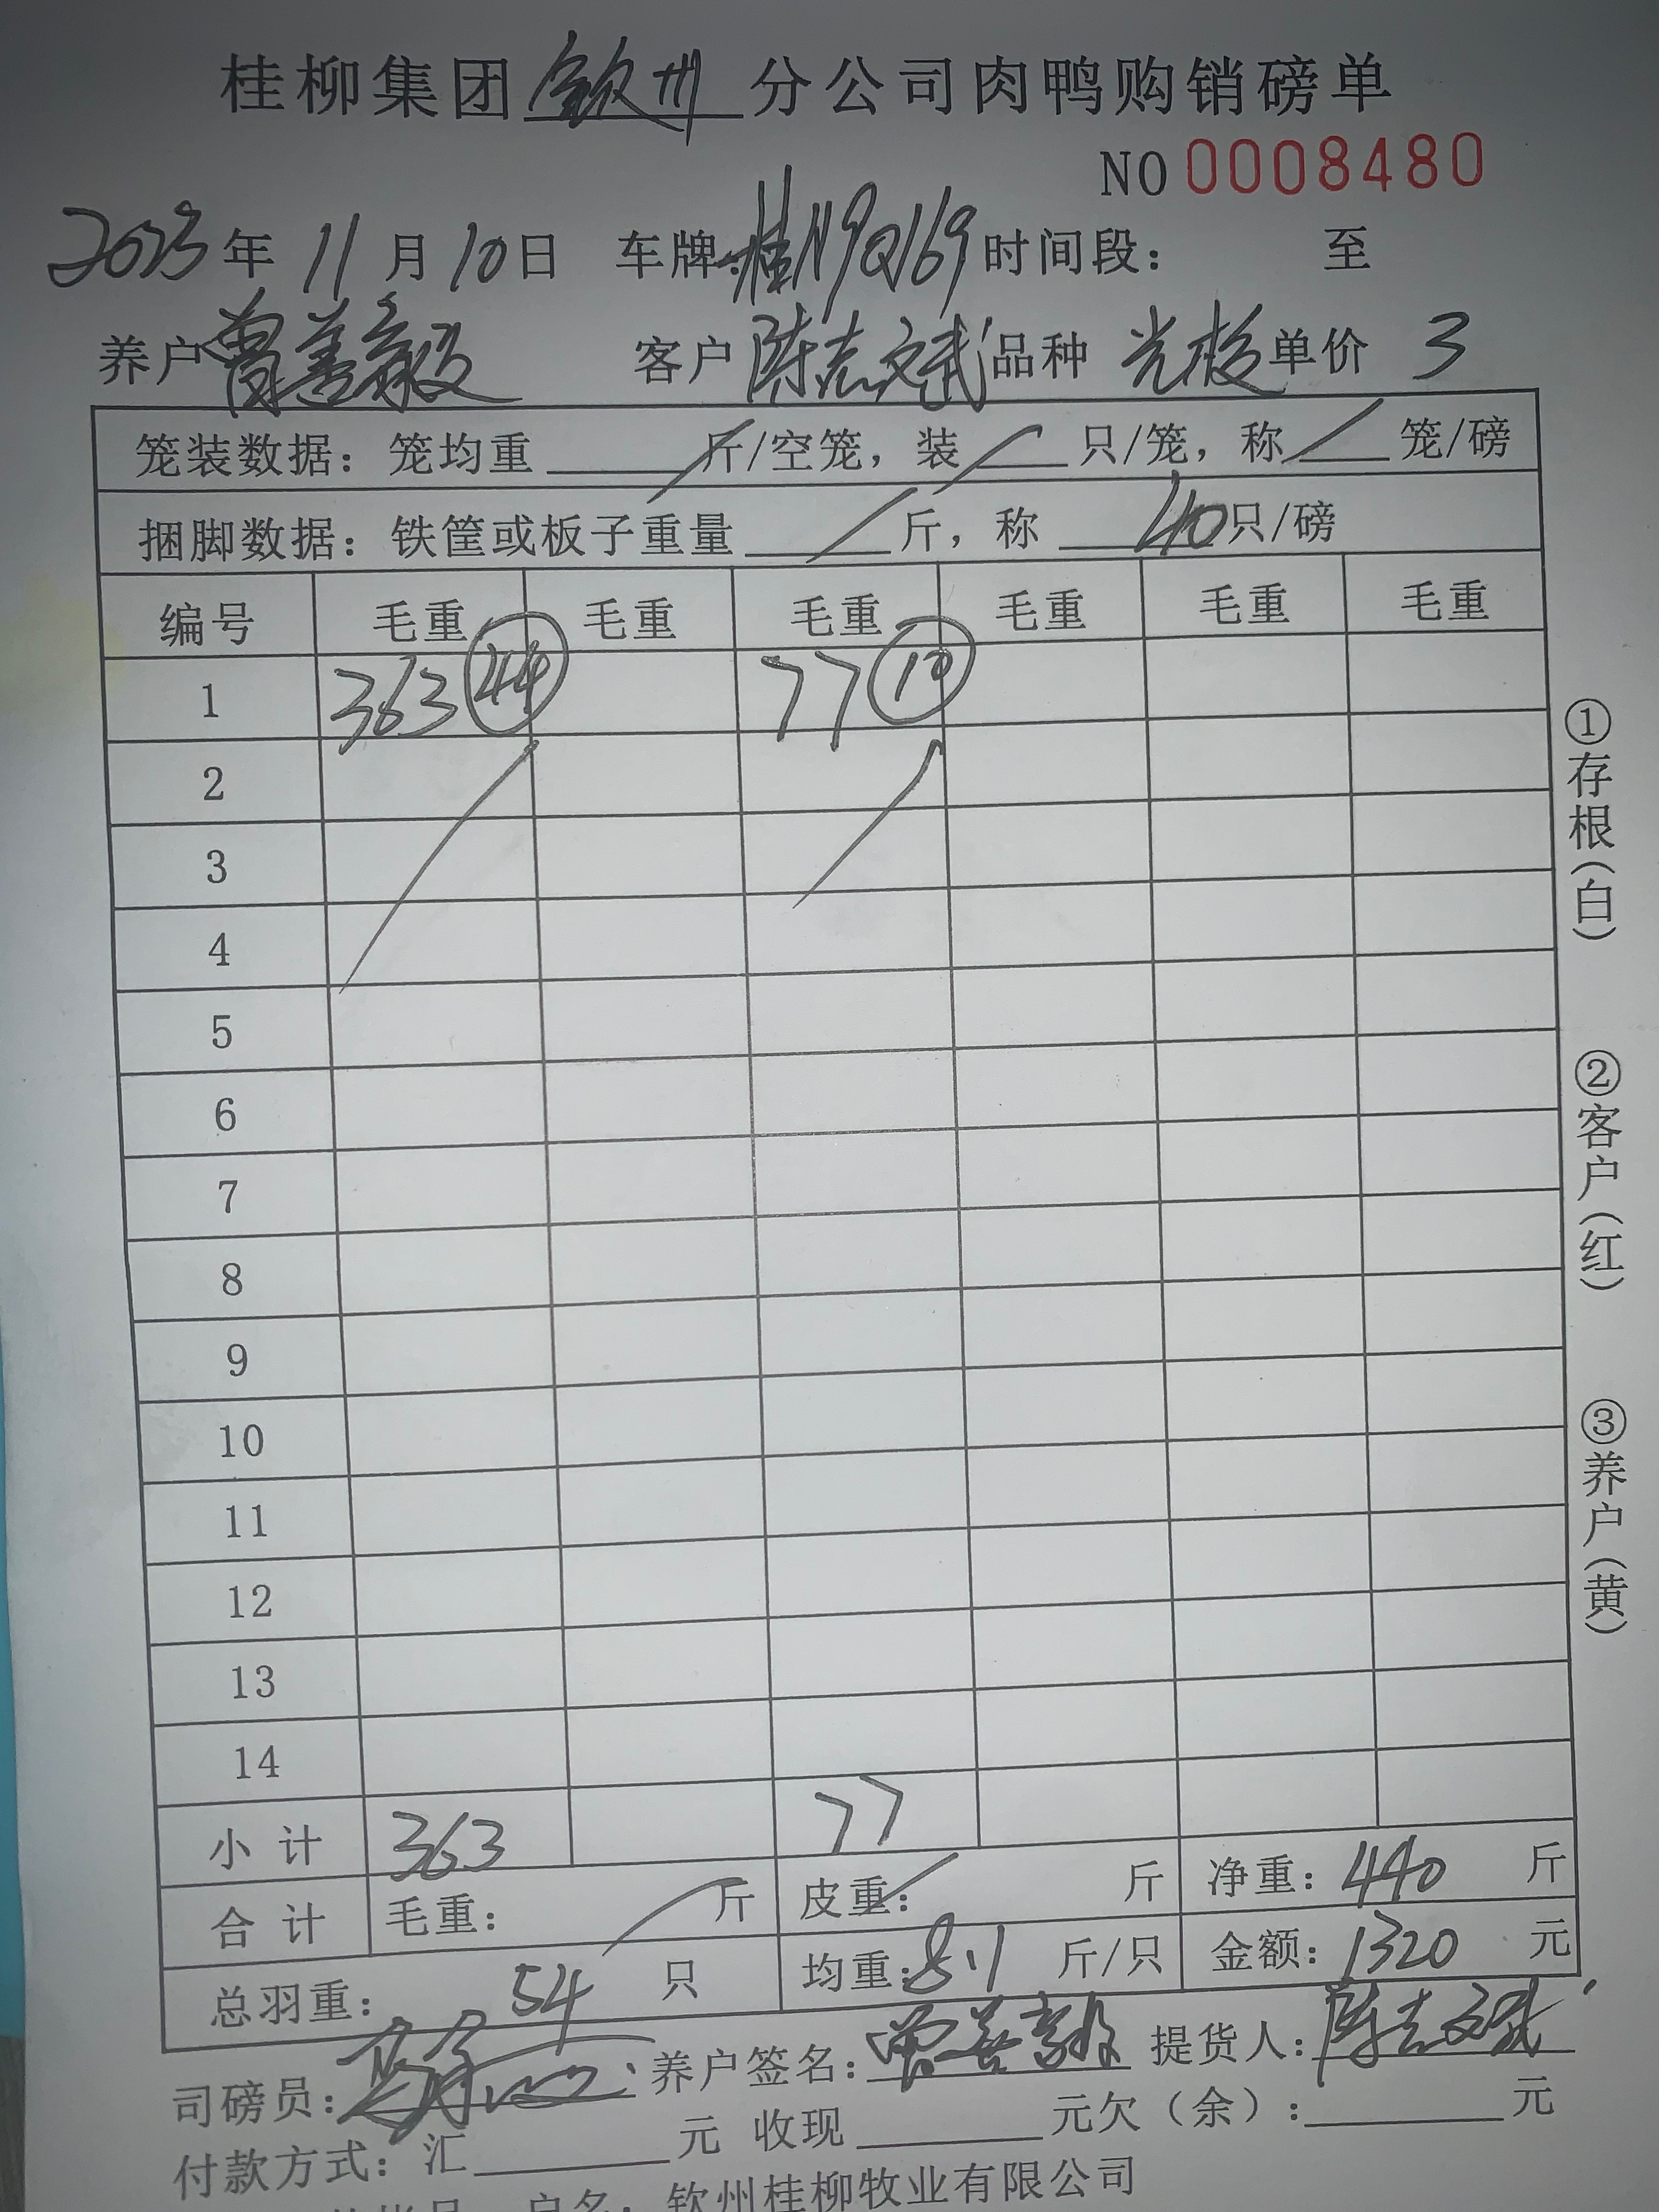 桂柳集团钦州分公司肉鸭购销磅单
NO 0008480
2023年 11月 10日 车牌:桂N9Q169 时间段: 至
养户 曾善毅 客户 陈志斌 品种 单价 3
笼装数据: 笼均重 斤/空笼, 装 只/笼, 称 笼/磅
捆脚数据: 铁筐或板子重量 斤, 称 40只/磅
编号 毛重 毛重 毛重 毛重 毛重 毛重
1 363 44 77 10
2
3
4
5
6
7
8
9
10
11
12
13
14
小计 363 77
合计 毛重: 斤 皮重: 斤 净重: 440 斤
总羽重: 54 只 均重: 8.1 斤/只 金额: 1320 元
司磅员: 养户签名: 曾善毅 提货人: 陈志斌
付款方式: 汇 元 收现 元欠(余): 元
户名: 钦州桂柳牧业有限公司
①存根(白)
②客户(红)
③养户(黄)